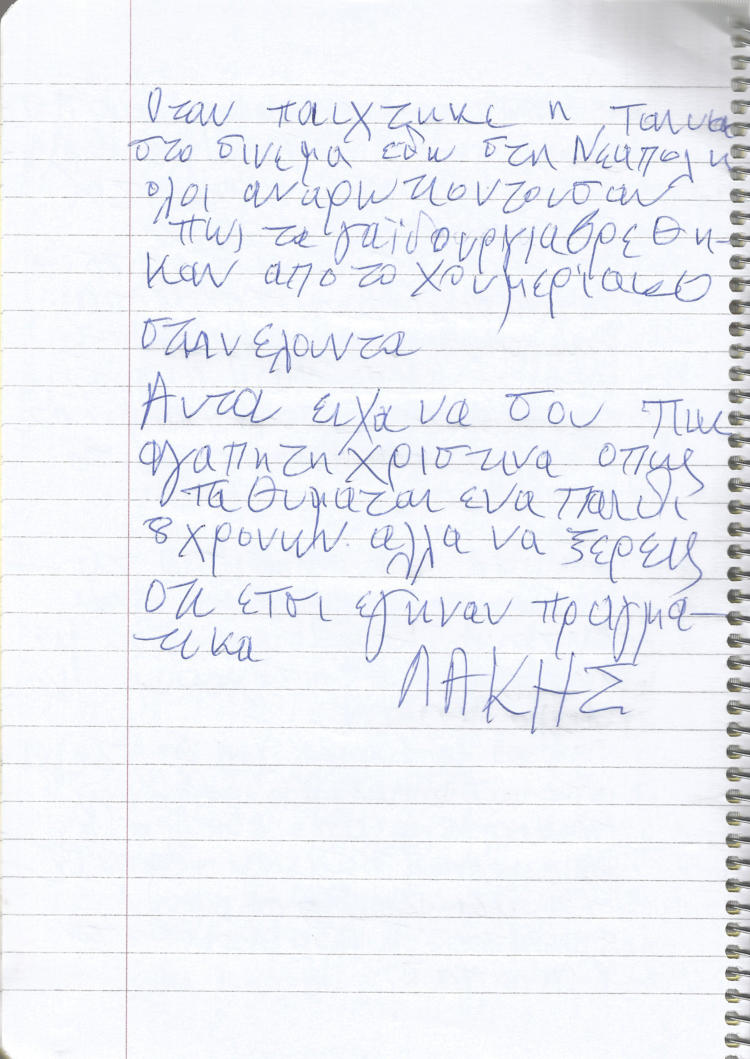 Οταν παιχτηκε η ταινια
στο σινεμα εδω στη Νεαπολη
ολοι αναρωτιοντουσαν
πως τα γαϊδουργια βρεθη-
καν απο το Χουμεριακο
στην ελουντα
Αυτα ειχα να σου πω
αγαπητη χριστινα οπως
τα θυμαται ενα παιδι
8 χρονων. αλλα να ξερεις
οτι ετσι εγιναν πραγμα-
τικα
ΛΑΚΗΣ